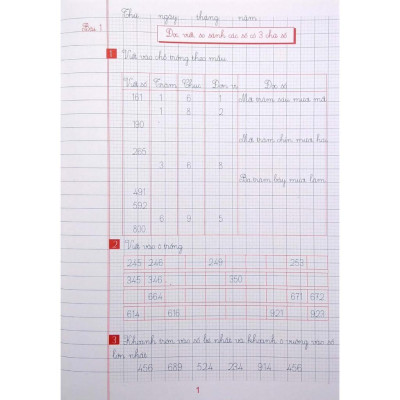 Thứ ngày tháng năm
Bài 1
Đọc, viết, so sánh các số có 3 chữ số
1 Viết vào chỗ trống theo mẫu
Viết số Trăm Chục Đơn vị Đọc số
161 1 6 1 Một trăm sáu mươi mốt
1 8 2
190
Một trăm chín mươi hai
265
3 6 8
Ba trăm bảy mươi lăm
491
592
6 9 5
800
2 Viết vào ô trống
245 246 249 253
345 346 350
664 671 672
614 616 921 923
3 Khoanh tròn vào số bé nhất và khoanh ô vuông vào số
lớn nhất
456 689 524 234 914 456
1